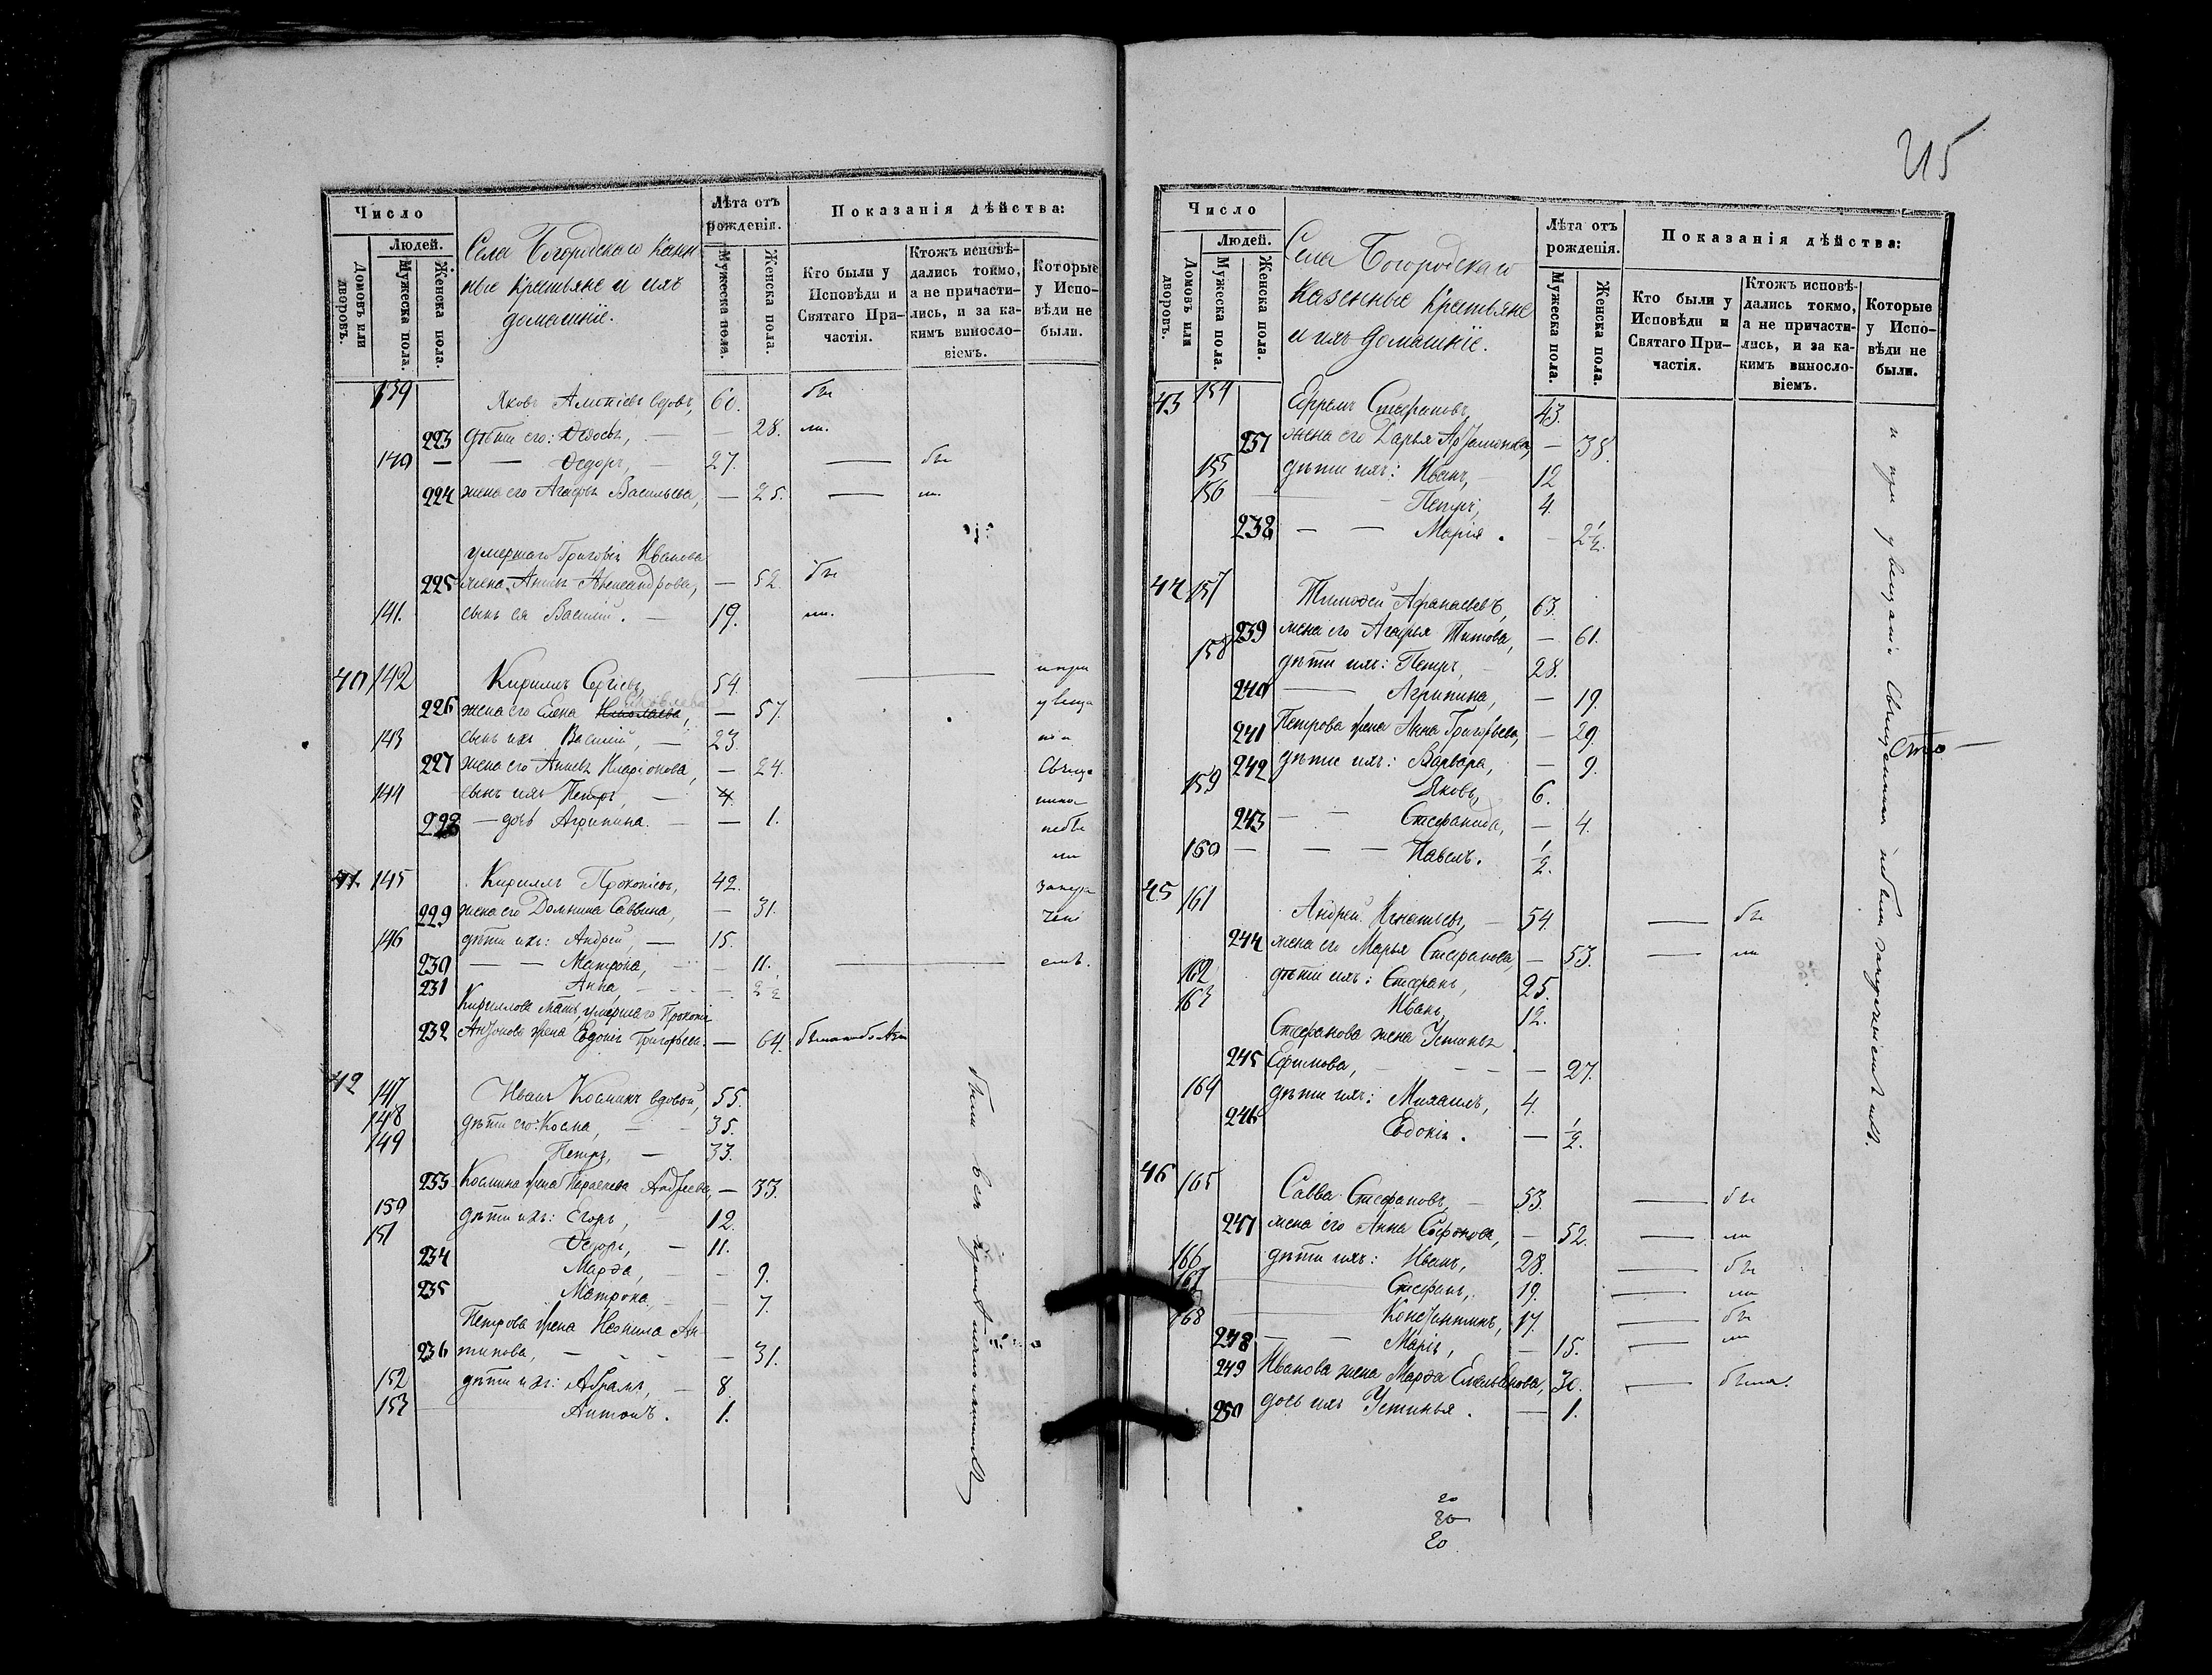 Число
Людей.
Домовъ или дворовъ.
Мужеска пола.
Женска пола.
Села Богородскаго Казен
ные крестьяне и ихъ
домашніе.
Лѣта отъ рожденія.
Мужеска пола.
Женска пола.
Показанія дѣйства:
Кто были у Исповѣди и Святаго Причастія.
Ктожъ исповѣдались токмо, а не причастились, и за какимъ винословіемъ.
Которые у Исповѣди не были.
139 Яковъ вдовъ, 60. бы
223 дѣти его: Ѳедосья, — — 28. ли.
140 — — Ѳедоръ, — 27. — бы
224 жена его Агафья Васильева, — 25. — ли.
умершаго Григорія Иванова
225 жена Анна Александрова, — 52. бы
141. сынъ ея Василій. — 19. ли.
40 142 Кириллъ Сергіевъ, 54. — и при
226 жена его Елена Николаева, — 57. увеща
143 сынъ ихъ Василій, — 23. ніи
227 жена его Анна Иларіонова, — 24. Свяще
144 сынъ ихъ Петръ, — 4. нника
228 — дочь Агрипина. — — 1. небы
ли
41 145 Кириллъ Прокопіевъ, 42. заору
229 жена его Домнина Саввина, — 31. чені
146 дѣти ихъ: Андрей, — 15.
230 — — Матрона, — 11. — емъ.
231 Анна, — 2½
Кириллова мать, умершаго Прокопія
232 жена Евдокія Григорьева. — 64.
42 147 Иванъ Косминъ вдовой, 55.
148 дѣти его: Косма, — 35.
149 Петръ, — 33.
233 Космина жена Параскева Андреева, — 33.
150 дѣти ихъ: Егоръ, — 12.
151 Ѳедоръ, — 11.
234 Марѳа, — 9.
235 Матрона, — 7.
Петрова жена Неонила Ан-
236 типова, — — — 31.
152 дѣти ихъ: Абрамъ, — 8.
153 Антонъ. 1.
были все
215
Число
Людей.
Домовъ или дворовъ.
Мужеска пола.
Женска пола.
Села Богородскаго
Казенные Крестьяне
и ихъ домашніе.
Лѣта отъ рожденія.
Мужеска пола.
Женска пола.
Показанія дѣйства:
Кто были у Исповѣди и Святаго Причастія.
Ктожъ исповѣдались токмо, а не причастились, и за какимъ винословіемъ.
Которые у Исповѣди не были.
43 154 Ефремъ Стефановъ, 43.
237 жена его Дарья Артамонова, — 38.
155 дѣти ихъ: Иванъ, — 12
156 — Петръ, 4.
238 — — Марія. — 2½.
44 157 Тимоѳей Афанасьевъ, 63.
239 жена его Агафья Титова, — 61.
158 дѣти ихъ: Петръ, — 28.
240 — Агрипина, — 19.
241 Петрова жена Анна Григорьева, — 29.
242 дѣти ихъ: Варвара, — 9.
159 Яковъ, 6.
243 — — Стефанида, — 4.
160 — — — Павелъ. ½.
45 161 Андрей Игнатьевъ, — 54. — бы
244 жена его Марья Стефанова, — 53. — ли
162 дѣти ихъ: Стефанъ, 25.
163 Иванъ, 12.
Стефанова жена Устинья
245 Ефимова, — — — 27.
164 дѣти ихъ: Михаилъ, 4.
246 Евдокія. — ½.
46 165 Савва Стефановъ, — 53. — бы
247 жена его Анна Сафонова, — 52. — ли
166 дѣти ихъ: Иванъ, 28. — бы
167 — Стефанъ, 19. — ли
168 — Константинъ, 17. — бы
248 — — Марія, — 15. — ли
249 Иванова жена Марѳа Емельянова, 30. — была.
250 дочь ихъ Устинья. — 1.
и при увещаніи Священника небыли
20
20
20